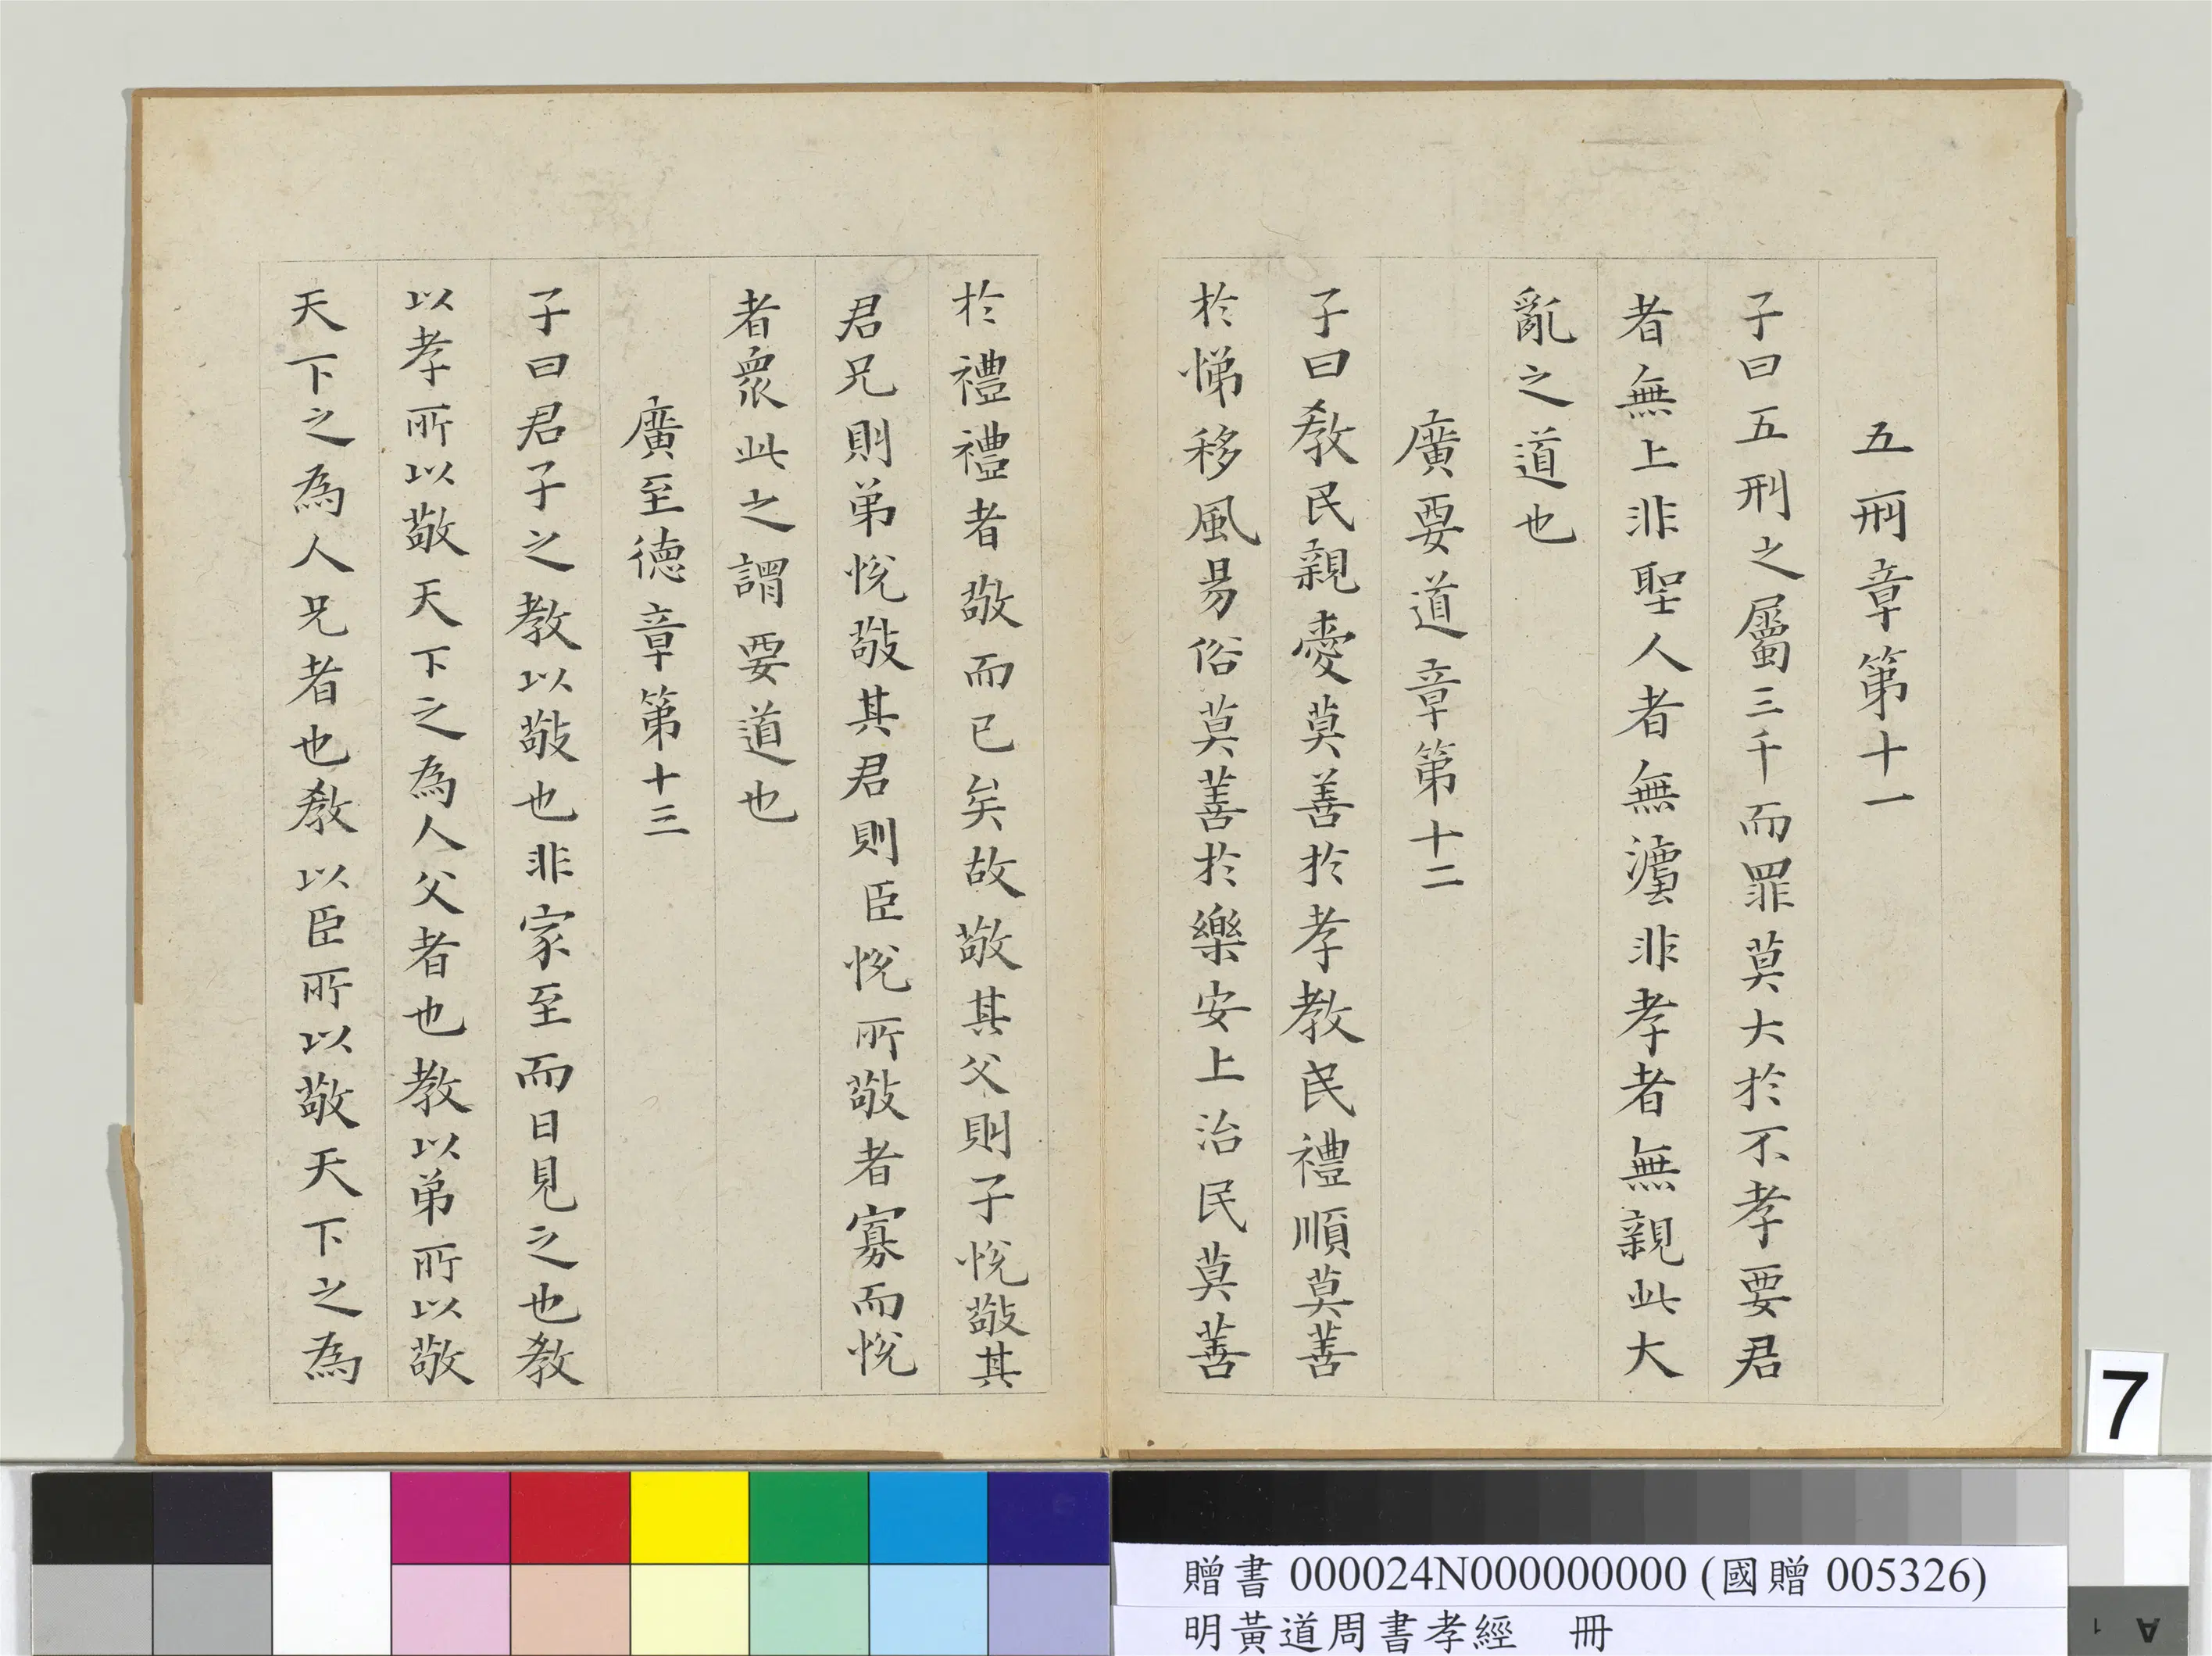 五刑章第十一
子曰五刑之屬三千而罪莫大於不孝要君
者無上非聖人者無灋非孝者無親此大
亂之道也
廣要道章第十二
子曰敎民親愛莫善於孝教民禮順莫善
於悌移風易俗莫善於樂安上治民莫善
於禮禮者敬而已矣故敬其父則子悅敬其
君兄則弟悅敬其君則臣悅所敬者寡而悅
者衆此之謂要道也
廣至德章第十三
子曰君子之教以敬也非家至而日見之也敎
以孝所以敬天下之為人父者也教以弟所以敬
天下之為人兄者也敎以臣所以敬天下之為
7
贈書 000024N000000000 (國贈 005326)
明黃道周書孝經 冊
A 1